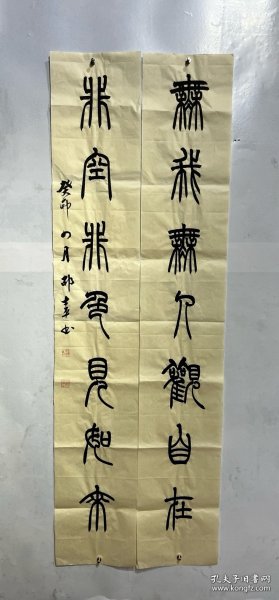 無我無人觀自在
非空非色見如來
癸卯四月
孔夫子旧书网